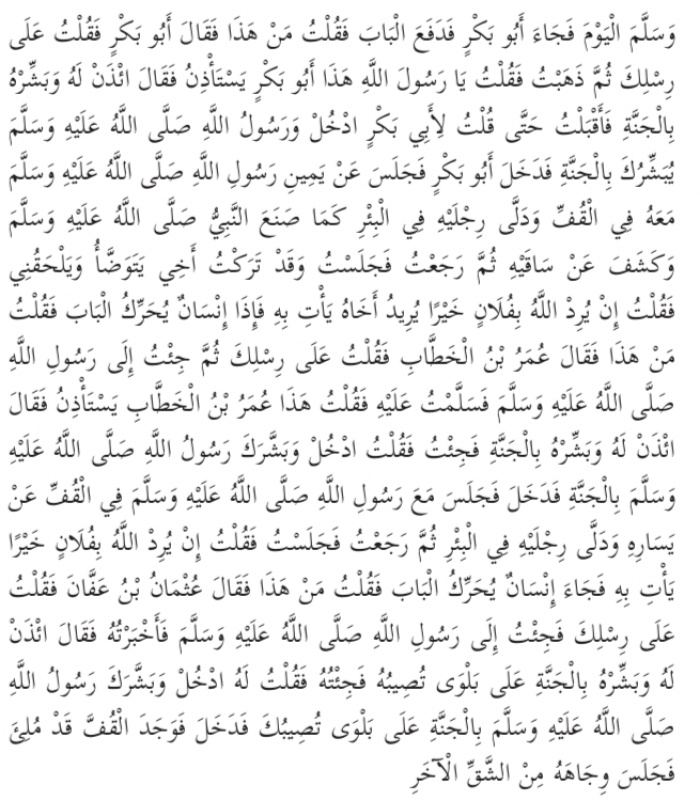 وَسَلَّمَ الْيَوْمَ فَجَاءَ أَبُو بَكْرٍ فَدَفَعَ الْبَابَ فَقُلْتُ مَنْ هَذَا فَقَالَ أَبُو بَكْرٍ فَقُلْتُ عَلَى
رِسْلِكَ ثُمَّ ذَهَبْتُ فَقُلْتُ يَا رَسُولَ اللَّهِ هَذَا أَبُو بَكْرٍ يَسْتَأْذِنُ فَقَالَ ائْذَنْ لَهُ وَبَشِّرْهُ
بِالْجَنَّةِ فَأَقْبَلْتُ حَتَّى قُلْتُ لِأَبِي بَكْرٍ ادْخُلْ وَرَسُولُ اللَّهِ صَلَّى اللَّهُ عَلَيْهِ وَسَلَّمَ
يُبَشِّرُكَ بِالْجَنَّةِ فَدَخَلَ أَبُو بَكْرٍ فَجَلَسَ عَنْ يَمِينِ رَسُولِ اللَّهِ صَلَّى اللَّهُ عَلَيْهِ وَسَلَّمَ
مَعَهُ فِي الْقُفِّ وَدَلَّى رِجْلَيْهِ فِي الْبِئْرِ كَمَا صَنَعَ النَّبِيُّ صَلَّى اللَّهُ عَلَيْهِ وَسَلَّمَ
وَكَشَفَ عَنْ سَاقَيْهِ ثُمَّ رَجَعْتُ فَجَلَسْتُ وَقَدْ تَرَكْتُ أَخِي يَتَوَضَّأُ وَيَلْحَقُنِي
فَقُلْتُ إِنْ يُرِدْ اللَّهُ بِفُلَانٍ خَيْرًا يُرِيدُ أَخَاهُ يَأْتِ بِهِ فَإِذَا إِنْسَانٌ يُحَرِّكُ الْبَابَ فَقُلْتُ
مَنْ هَذَا فَقَالَ عُمَرُ بْنُ الْخَطَّابِ فَقُلْتُ عَلَى رِسْلِكَ ثُمَّ جِئْتُ إِلَى رَسُولِ اللَّهِ
صَلَّى اللَّهُ عَلَيْهِ وَسَلَّمَ فَسَلَّمْتُ عَلَيْهِ فَقُلْتُ هَذَا عُمَرُ بْنُ الْخَطَّابِ يَسْتَأْذِنُ فَقَالَ
ائْذَنْ لَهُ وَبَشِّرْهُ بِالْجَنَّةِ فَجِئْتُ فَقُلْتُ ادْخُلْ وَبَشَّرَكَ رَسُولُ اللَّهِ صَلَّى اللَّهُ عَلَيْهِ
وَسَلَّمَ بِالْجَنَّةِ فَدَخَلَ فَجَلَسَ مَعَ رَسُولِ اللَّهِ صَلَّى اللَّهُ عَلَيْهِ وَسَلَّمَ فِي الْقُفِّ عَنْ
يَسَارِهِ وَدَلَّى رِجْلَيْهِ فِي الْبِئْرِ ثُمَّ رَجَعْتُ فَجَلَسْتُ فَقُلْتُ إِنْ يُرِدْ اللَّهُ بِفُلَانٍ خَيْرًا
يَأْتِ بِهِ فَجَاءَ إِنْسَانٌ يُحَرِّكُ الْبَابَ فَقُلْتُ مَنْ هَذَا فَقَالَ عُثْمَانُ بْنُ عَفَّانَ فَقُلْتُ
عَلَى رِسْلِكَ فَجِئْتُ إِلَى رَسُولِ اللَّهِ صَلَّى اللَّهُ عَلَيْهِ وَسَلَّمَ فَأَخْبَرْتُهُ فَقَالَ ائْذَنْ
لَهُ وَبَشِّرْهُ بِالْجَنَّةِ عَلَى بَلْوَى تُصِيبُهُ فَجِئْتُهُ فَقُلْتُ لَهُ ادْخُلْ وَبَشَّرَكَ رَسُولُ اللَّهِ
صَلَّى اللَّهُ عَلَيْهِ وَسَلَّمَ بِالْجَنَّةِ عَلَى بَلْوَى تُصِيبُكَ فَدَخَلَ فَوَجَدَ الْقُفَّ قَدْ مُلِئَ
فَجَلَسَ وِجَاهَهُ مِنْ الشَّقِّ الْآخَرِ